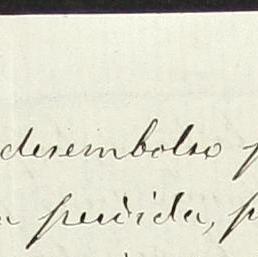 desembolso p
a perdida, p